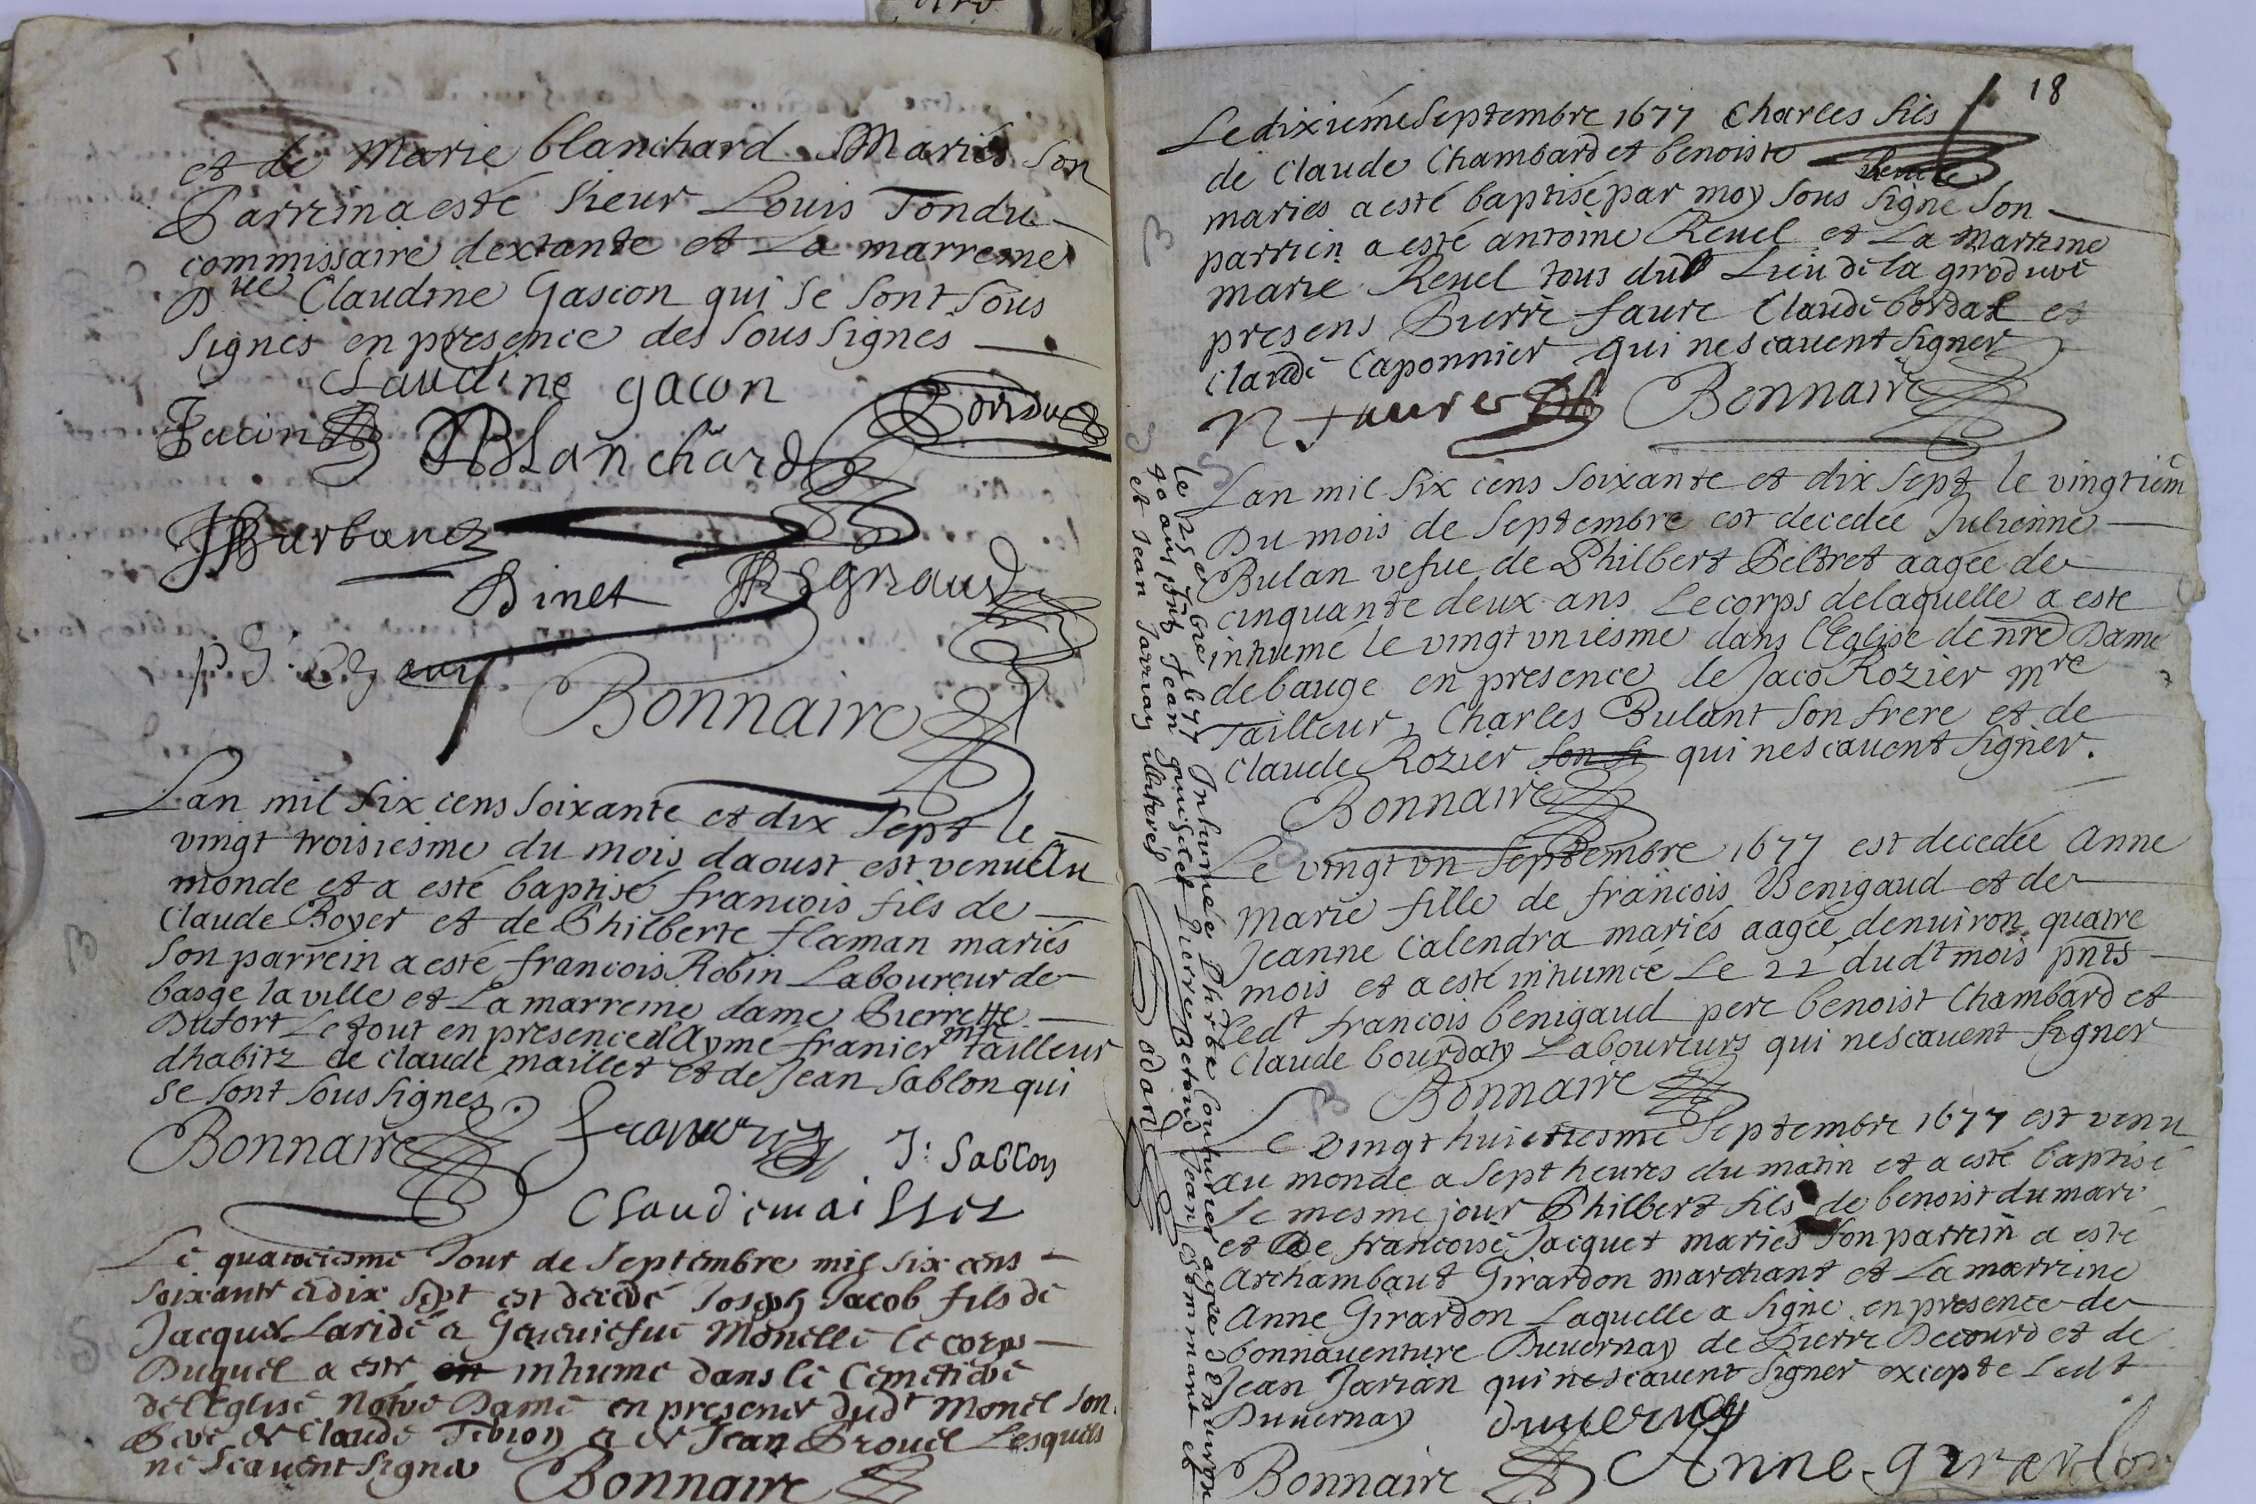 et de Marie blanchard Mariés son
Parrin a esté sieur Louis Tondu
commissaire dextante et La marreine
Dlle Claudine Gascon qui se sont sous
signes en presence des sous signes
Claudine gacon
Blanchard
Dinet Regnaud
Bonnaire
Lan mil six cens soixante et dix sept le
vingt troisiesme du mois daoust est venu au
monde et a esté baptisé francois fils de
Claude Royer et de Philberte flaman mariés
son parrein a esté francois Robin Laboureur de
basge la ville et La marreine dame Pierrette
Dufort Le tout en presence d'Ayme franier mre tailleur
dhabitz de claude maillet et de Jean Sablon qui
se sont sous signes.
Bonnaire J: Sablon
Claude maillet
Le jour de Septembre mil six cens
soixante et dix sept est decedé Joseph Jacob fils de
Jacques Laridé et Monelle le corps
Duquel a esté inhumé dans le Cemetiere
de l'Eglise Notre Dame en presence dudt Monel son
de Claude et de Jean Lesquels
ne scauent signer Bonnaire
18
Le dixiéme Septembre 1677 Charles fils
de Claude Chambard et benoiste Reuel
mariés a esté baptisé par moy sous signé son
parrein a esté antoine Reuel et La marreine
marie Reuel tous du Lieu de la
presens Pierre faure Claude bordat et
claude Caponnier qui nescauent signer
Bonnaire
Lan mil six cens soixante et dix sept le vingtiem
Du mois de Septembre est decedée Julienne
Bulan vefue de Philbert Peltret aagée de
cinquante deux ans Le corps de laquelle a este
inhumé le vingt vniesme dans l'Eglise de nre Dame
de bauge en presence de Jaco Rozier mre
Tailleur, Charles Bulant son frere et de
Claude Rozier son fr qui nescauent signer.
Bonnaire
Le vingt vn Septembre 1677 est decedée Anne
Marie fille de francois Benigaud et de
Jeanne Calendra mariés aagée denuiron quatre
mois et a esté inhumée Le 22 dudt mois pnts
Ledt francois benigaud pere benoist Chambard et
Claude bourdat Laboureurs qui nescauent signer
Bonnaire
Le vingt huictiesme Septembre 1677 est venu
au monde a sept heures du matin et a esté baptisé
le mesme jour Philbert fils de benoist dumarc
et de francoise Jacquet mariés son parrein a esté
Archambaut Girardon marchant et La marreine
Anne Girardon Laquelle a signé en presence de
bonnauenture Duuernay de Pierre Decourd et de
Jean Jarian qui nescauent signer excepté Ledt
Duuernay duuernay
Bonnaire Anne girardon
le 25e 7bre 1677 Inhumée Couturier agée denuiron
40 ans pnts Jean Pierre Jean et
et Jean Jarriay illiterés